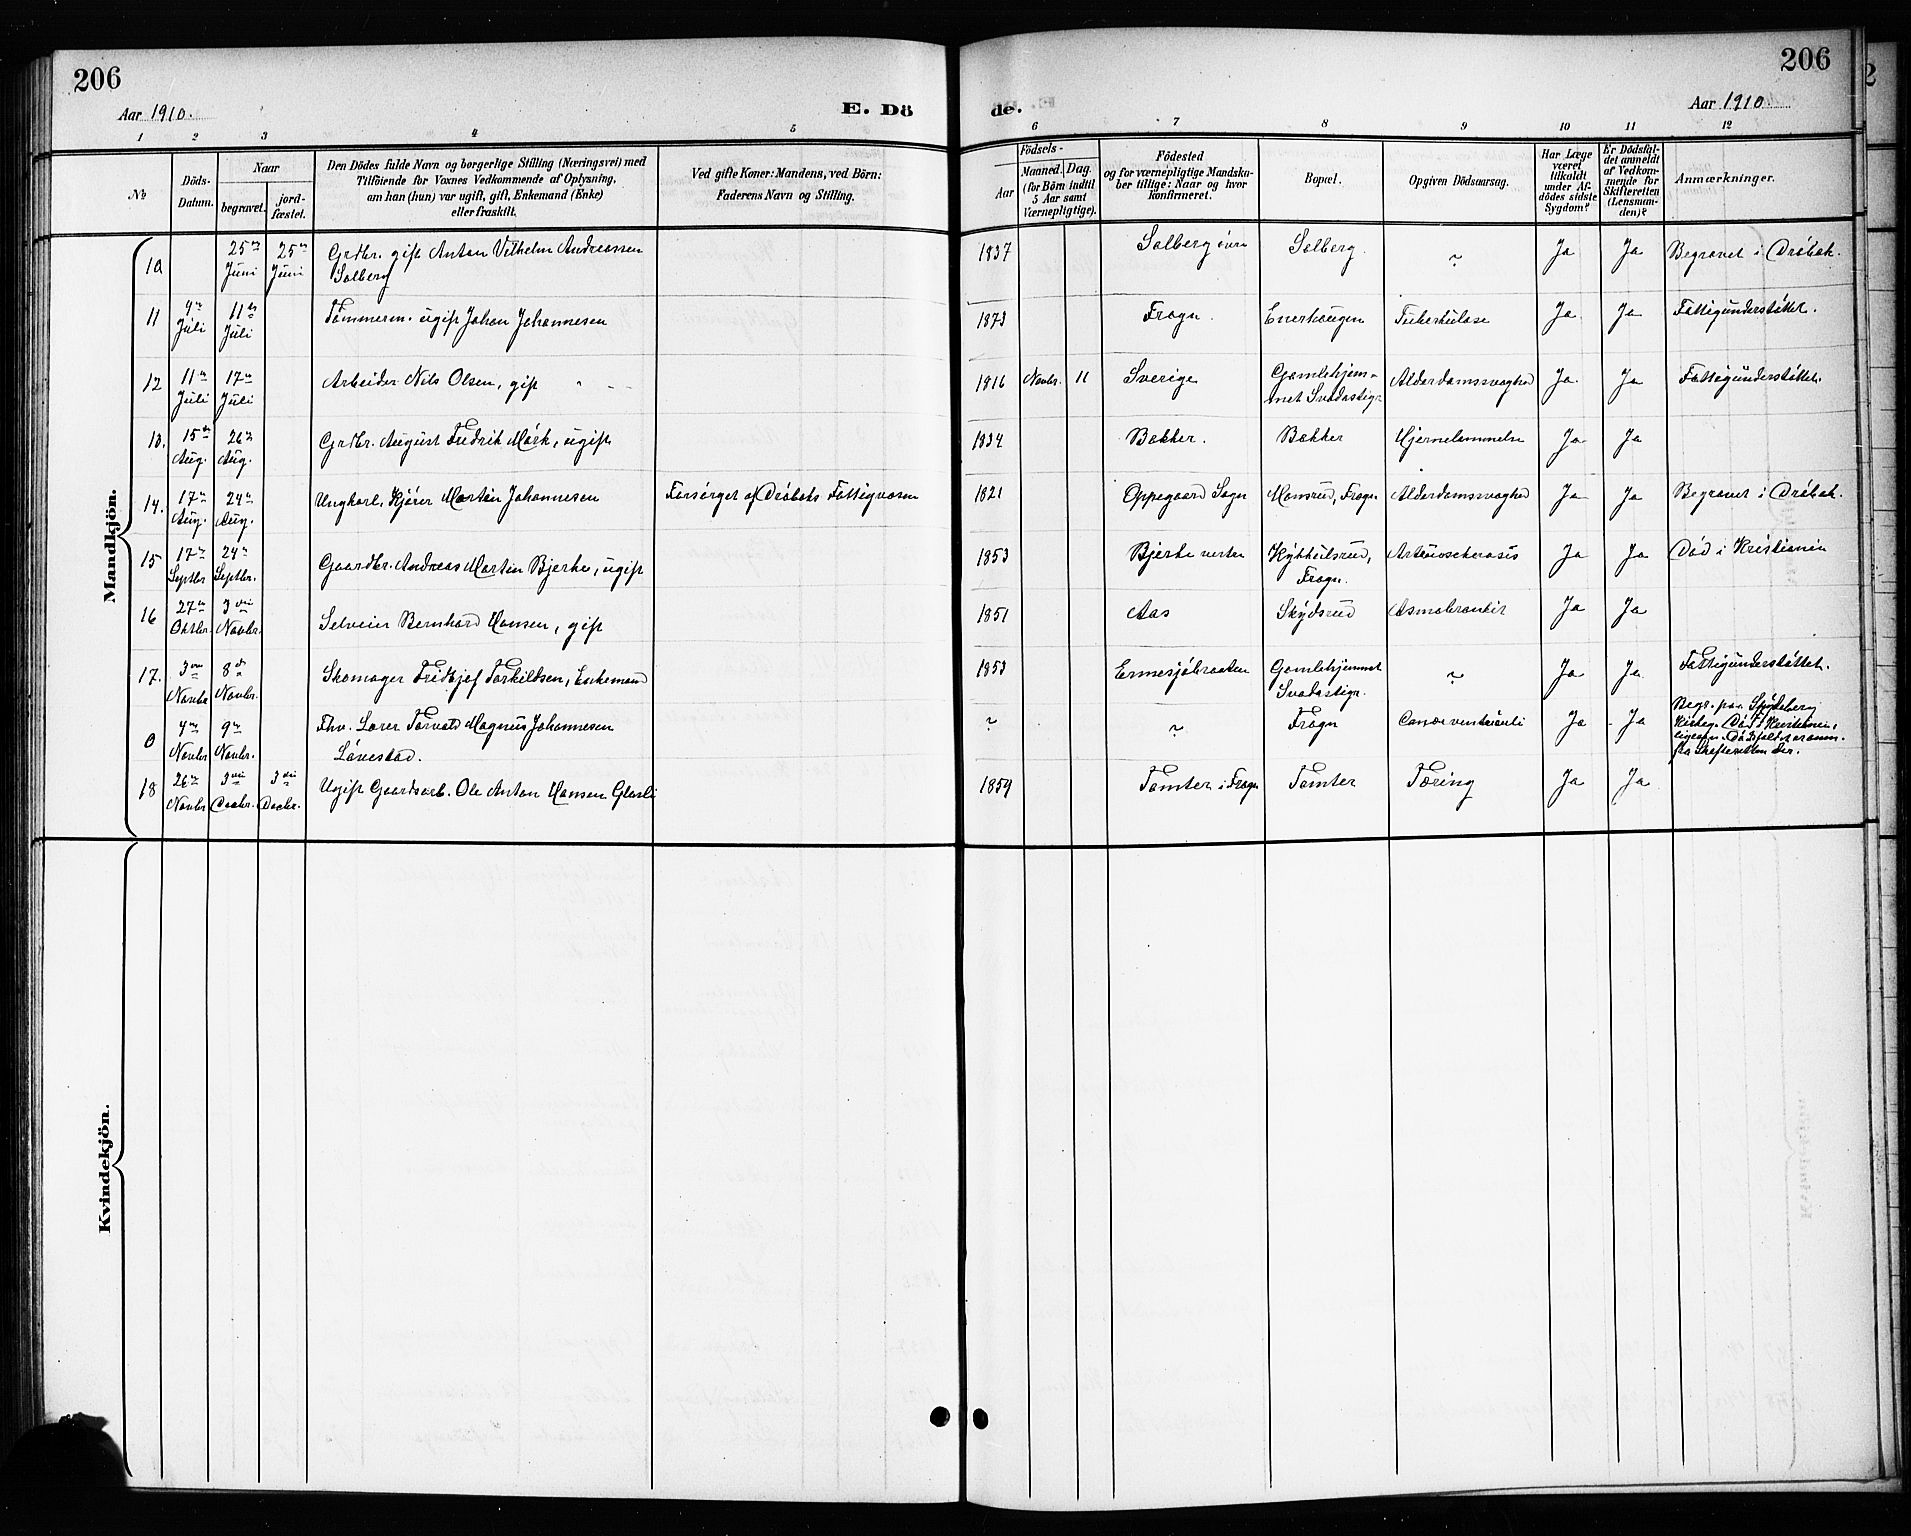 206
206
Aar 1910.
E. Dö
de.
Aar 1910
1 2 3 4 5 6 7 8 9 10 11 12
No
Döds-Datum.
Naar
begravet.
jord-fæstet.
Den Dödes fulde Navn og borgerlige Stilling (Næringsvei) med
Tilföiende for Voxnes Vedkommende af Oplysning,
om han (hun) var ugift, gift, Enkemand (Enke)
eller fraskilt.
Ved gifte Koner: Mandens, ved Börn:
Faderens Navn og Stilling.
Födsels-
Aar
Maaned. Dag.
(for Börn indtil
5 Aar samt
Værnepligtige).
Födested
og for værnepligtige Mandska-
ber tillige: Naar og hvor
konfirmeret.
Bopæl.
Opgiven Dödsaarsag.
Har Læge
været
tilkaldt
under Af-
dödes sidste
Sygdom?
Er Dödsfal-
det anmeldt
af Vedkom-
mende for
Skifteretten
(Lensman-
den)?
Anmærkninger.
Mandkjön.
10 25de Juni 25de Juni Grdbr. gift Anton Vilhelm Andreassen Solberg 1837 Solberg övre Solberg. ~ Ja Ja Begravet i Dröbak.
11 9de Juli 11te Juli Tömmerm. ugift Johan Johannesen 1873 Frogn. Enerhaugen Tuberkulose Ja Ja Fattigunderstöttet.
12 11te Juli 17de Juli Arbeider Nils Olsen, gift 1816 Novbr. 11 Sverige Gamlehjem-met Svadastigr Alderdomssvaghed Ja Ja Fattigunderstöttet.
13. 15de Aug. 26de Aug. Grdbr. August Fredrik Mörk, ugift 1834 Bakker. Bakker Hjernelammelse Ja Ja
14. 17de Aug. 24de Aug. Ungkarl, Kjörer Martin Johannesen Forsörget af Dröbaks Fattigvæsen 1821 Oppegaard Sogn Monsrud, Frogn Alderdomssvaghed Ja Ja Begravet i Dröbak.
15 17de Septbr 24de Septbr. Gaardbr. Andreas Martin Bjerke, ugift 1853 Bjerke vestre Frogn. Ja Ja Död i Kristiania
16 27de Oktbr. 3die Novbr. Selveier Bernhard Hansen, gift 1851 Aas Skydsrud Ja Ja
17. 3die Novbr 8de Novbr. Skomager Fridtjof Torkildsen, Enkemand 1853 Ermesjöbraaten Gamlehjemmet Svadastigr. ~ Ja Ja Fattigunderstöttet.
0 4de Novbr 9de Novbr. Fhv. Lærer Torvald Magnus Johannesen Lönestad. ~ ~ Frogn Ja Ja Begr. paa Spydeberg Kirkeg. Död i Kristiania,
18 26de Novbr 3die Decbr. 3die Decbr. Ugift Gaardsarb. Ole Anton Hansen Glasli 1859 Tomter i Frogn Tomter Tæring Ja Ja
Kvindekjön.